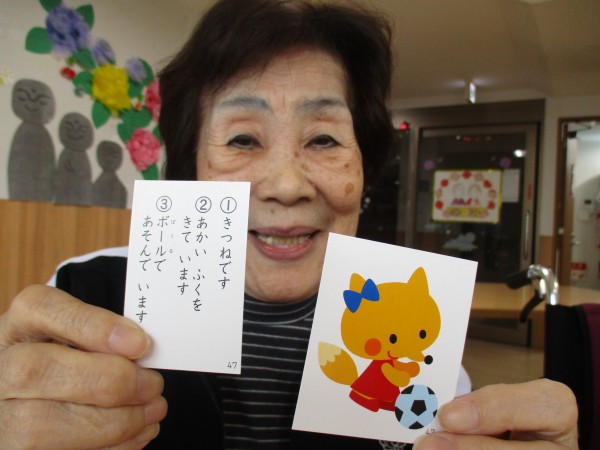 ①きつねです
②あかい ふくを
きて います
③ボールで
ぼーる
あそんで います
47
47